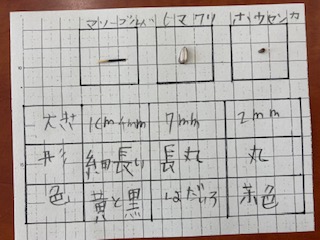 マリーゴールド ヒマワリ ホウセンカ
大きさ 1cm4mm 7mm 2mm
形 細長い 長丸 丸
色 黄と黒 はだいろ 茶色